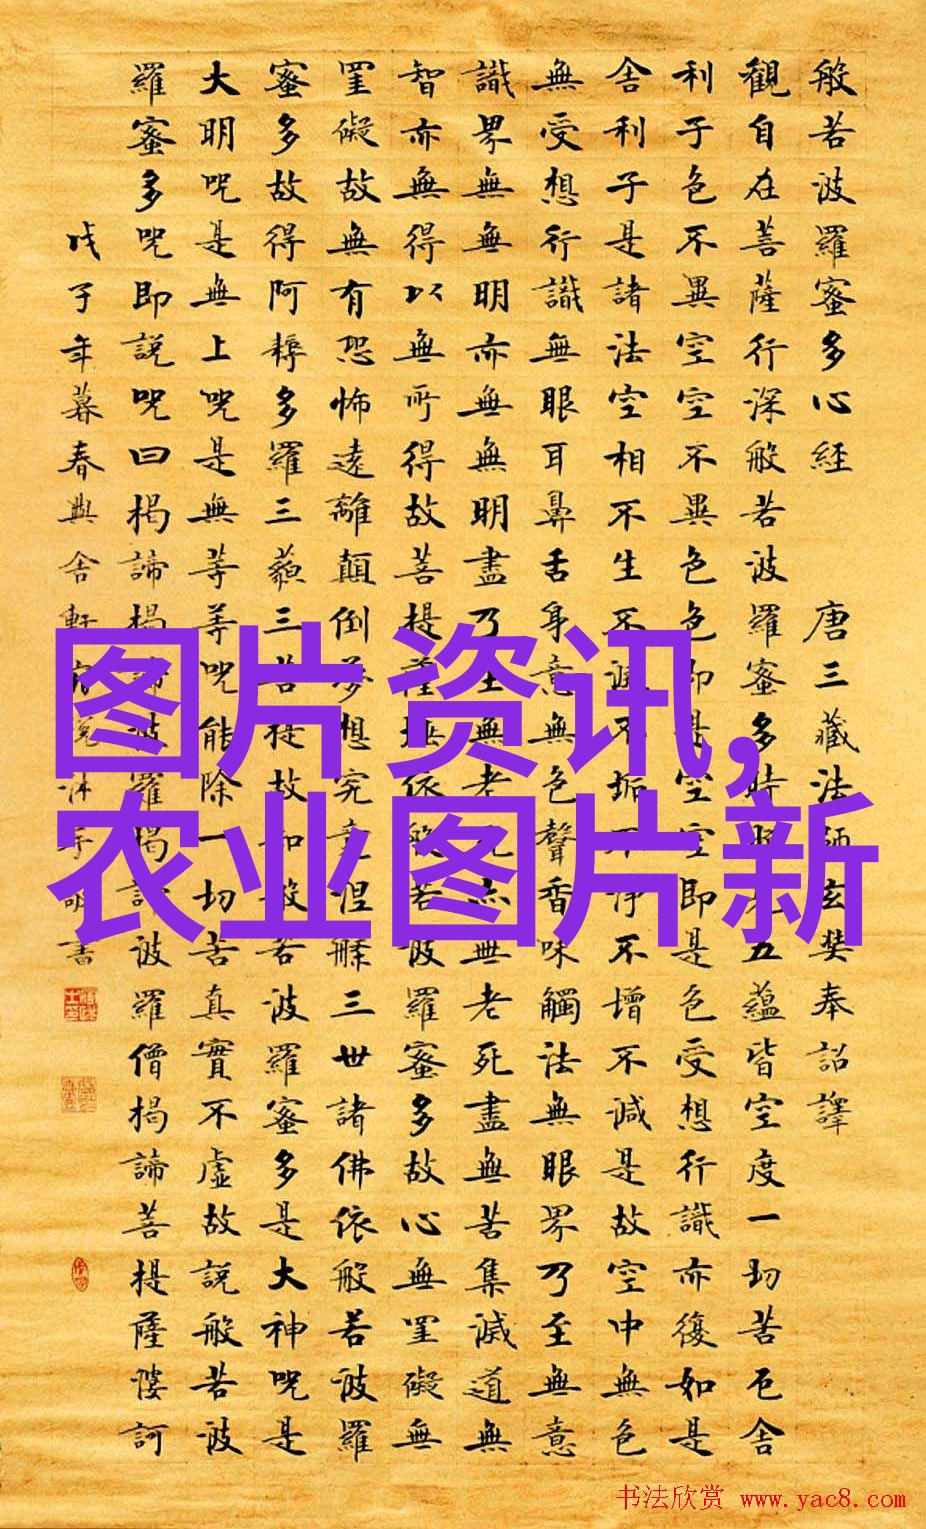 般若波羅蜜多心經 唐三藏法師玄奘奉詔譯
觀自在菩薩行深般若波羅蜜多時照見五蘊皆空度一切苦厄舍
利子色不異空空不異色色即是空空即是色受想行識亦復如是
舍利子是諸法空相不生不滅不垢不淨不增不減是故空中無色
無受想行識無眼耳鼻舌身意無色聲香味觸法無眼界乃至無意
識界無無明亦無無明盡乃至無老死亦無老死盡無苦集滅道無
智亦無得以無所得故菩提薩埵依般若波羅蜜多故心無罣礙無
罣礙故無有恐怖遠離顛倒夢想究竟涅槃三世諸佛依般若波羅
蜜多故得阿耨多羅三藐三菩提故知般若波羅蜜多是大神咒是
大明咒是無上咒是無等等咒能除一切苦真實不虛故說般若波
羅蜜多咒即說咒曰揭諦揭諦波羅揭諦波羅僧揭諦菩提薩婆訶
戊子年暮春興舍軒書
图片资讯,
农业图片新
书法欣赏 www.yac8.com